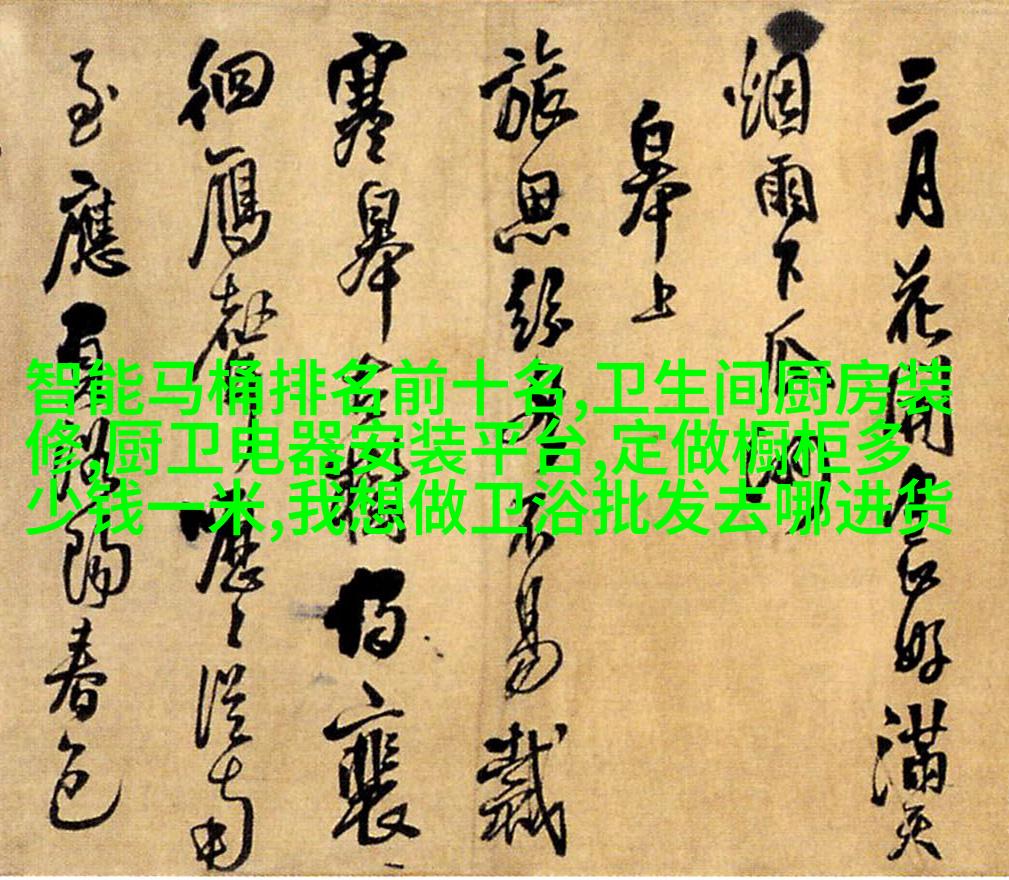 智能马桶排名前十名,卫生间厨房装
修,厨卫电器安装平台,定做橱柜多
少钱一米,我想做卫浴批发去哪进货
三月花好滿天
烟雨下瓜洲
皋上
旅思不易裁
寒皋裵
徊鴈聲嚦〻從南
至應陽春色